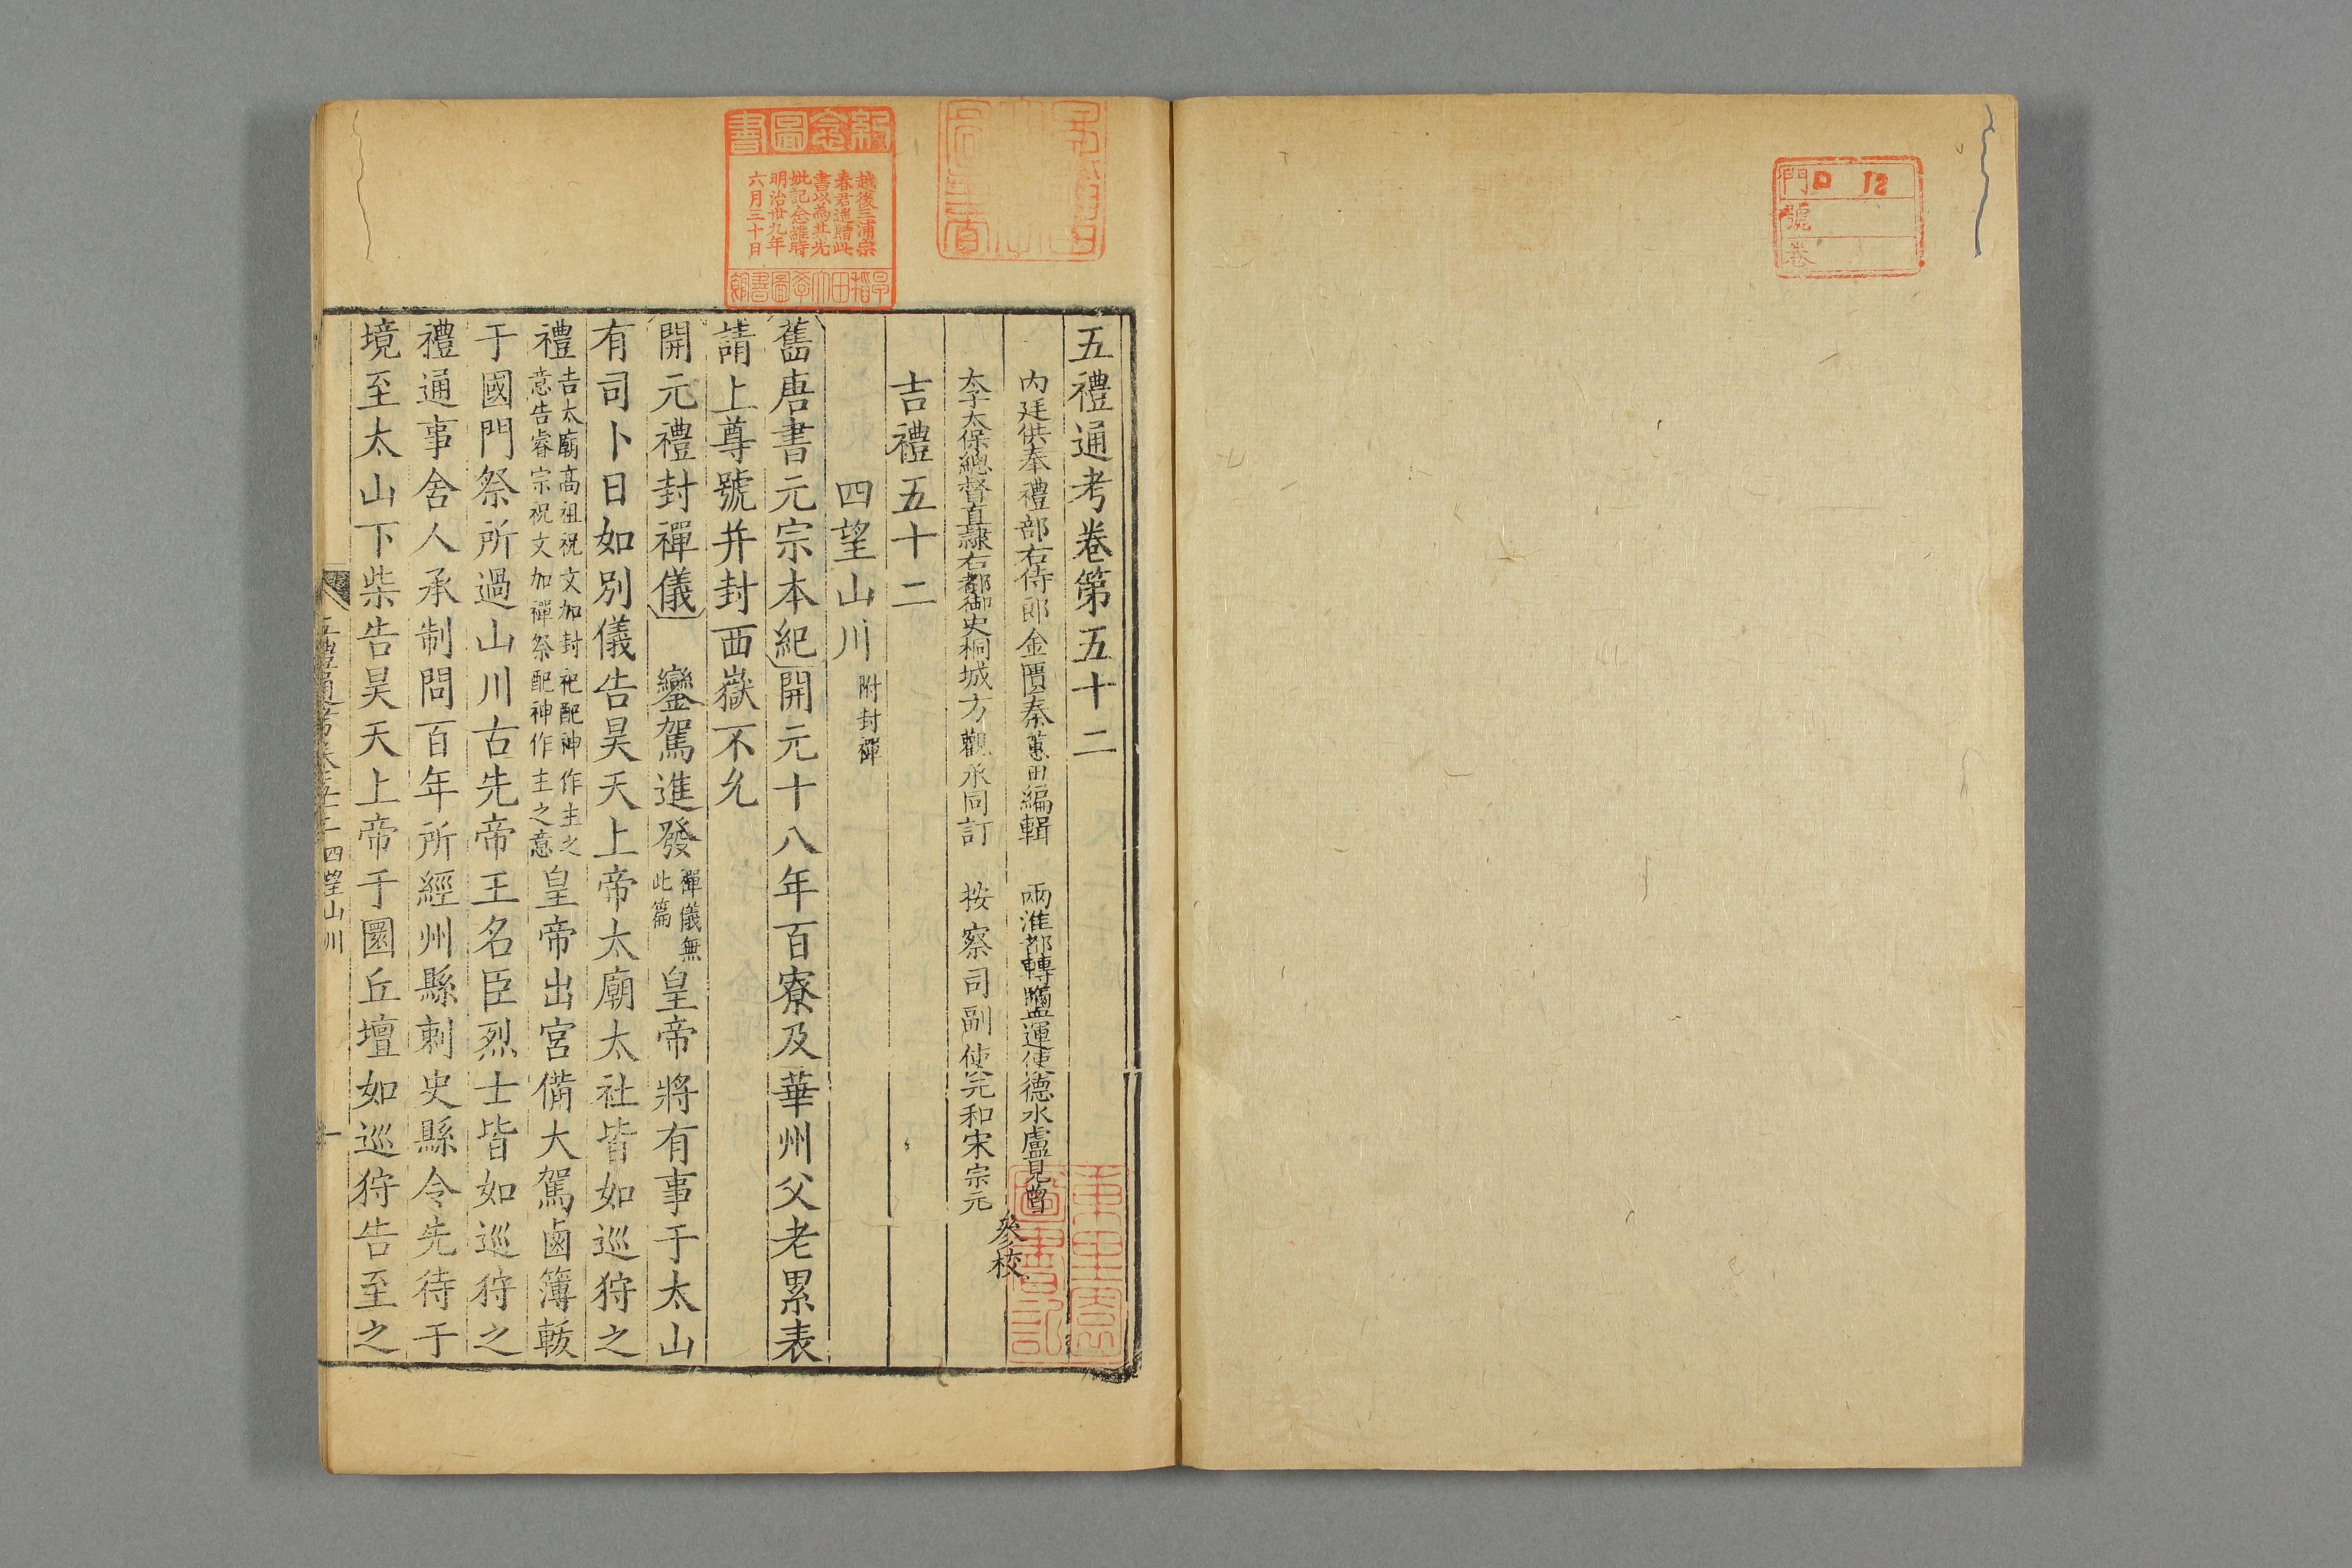 門 口 12
號
卷
五禮通考卷第五十二
內廷供奉禮部右侍郎金匱秦蕙田編輯 兩淮都轉鹽運使德水盧見曾
太子太保總督直隸右都御史桐城方觀承同訂 按察司副使元和宋宗元
參校
吉禮五十二
四望山川 附封禪
舊唐書元宗本紀開元十八年百寮及華州父老累表
請上尊號并封西嶽不允
開元禮封禪儀 鑾駕進發 禪儀無此篇 皇帝將有事于太山
有司卜日如別儀告昊天上帝太廟太社皆如巡狩之
禮 告太廟高祖祝文加封祀配神作主之意告睿宗祝文加禪祭配神作主之意 皇帝出宮備大駕鹵簿軷
于國門祭所過山川古先帝王名臣烈士皆如巡狩之
禮通事舍人承制問百年所經州縣刺史縣令先待于
境至太山下柴告昊天上帝于圜丘壇如巡狩告至之
五禮通考卷五十二 四望山川 一
紀念圖書
越後三浦宗
春君進贈此
書以為其先
妣記念維時
明治卅九年
六月三十日
早稻田大學圖書館
圖書記